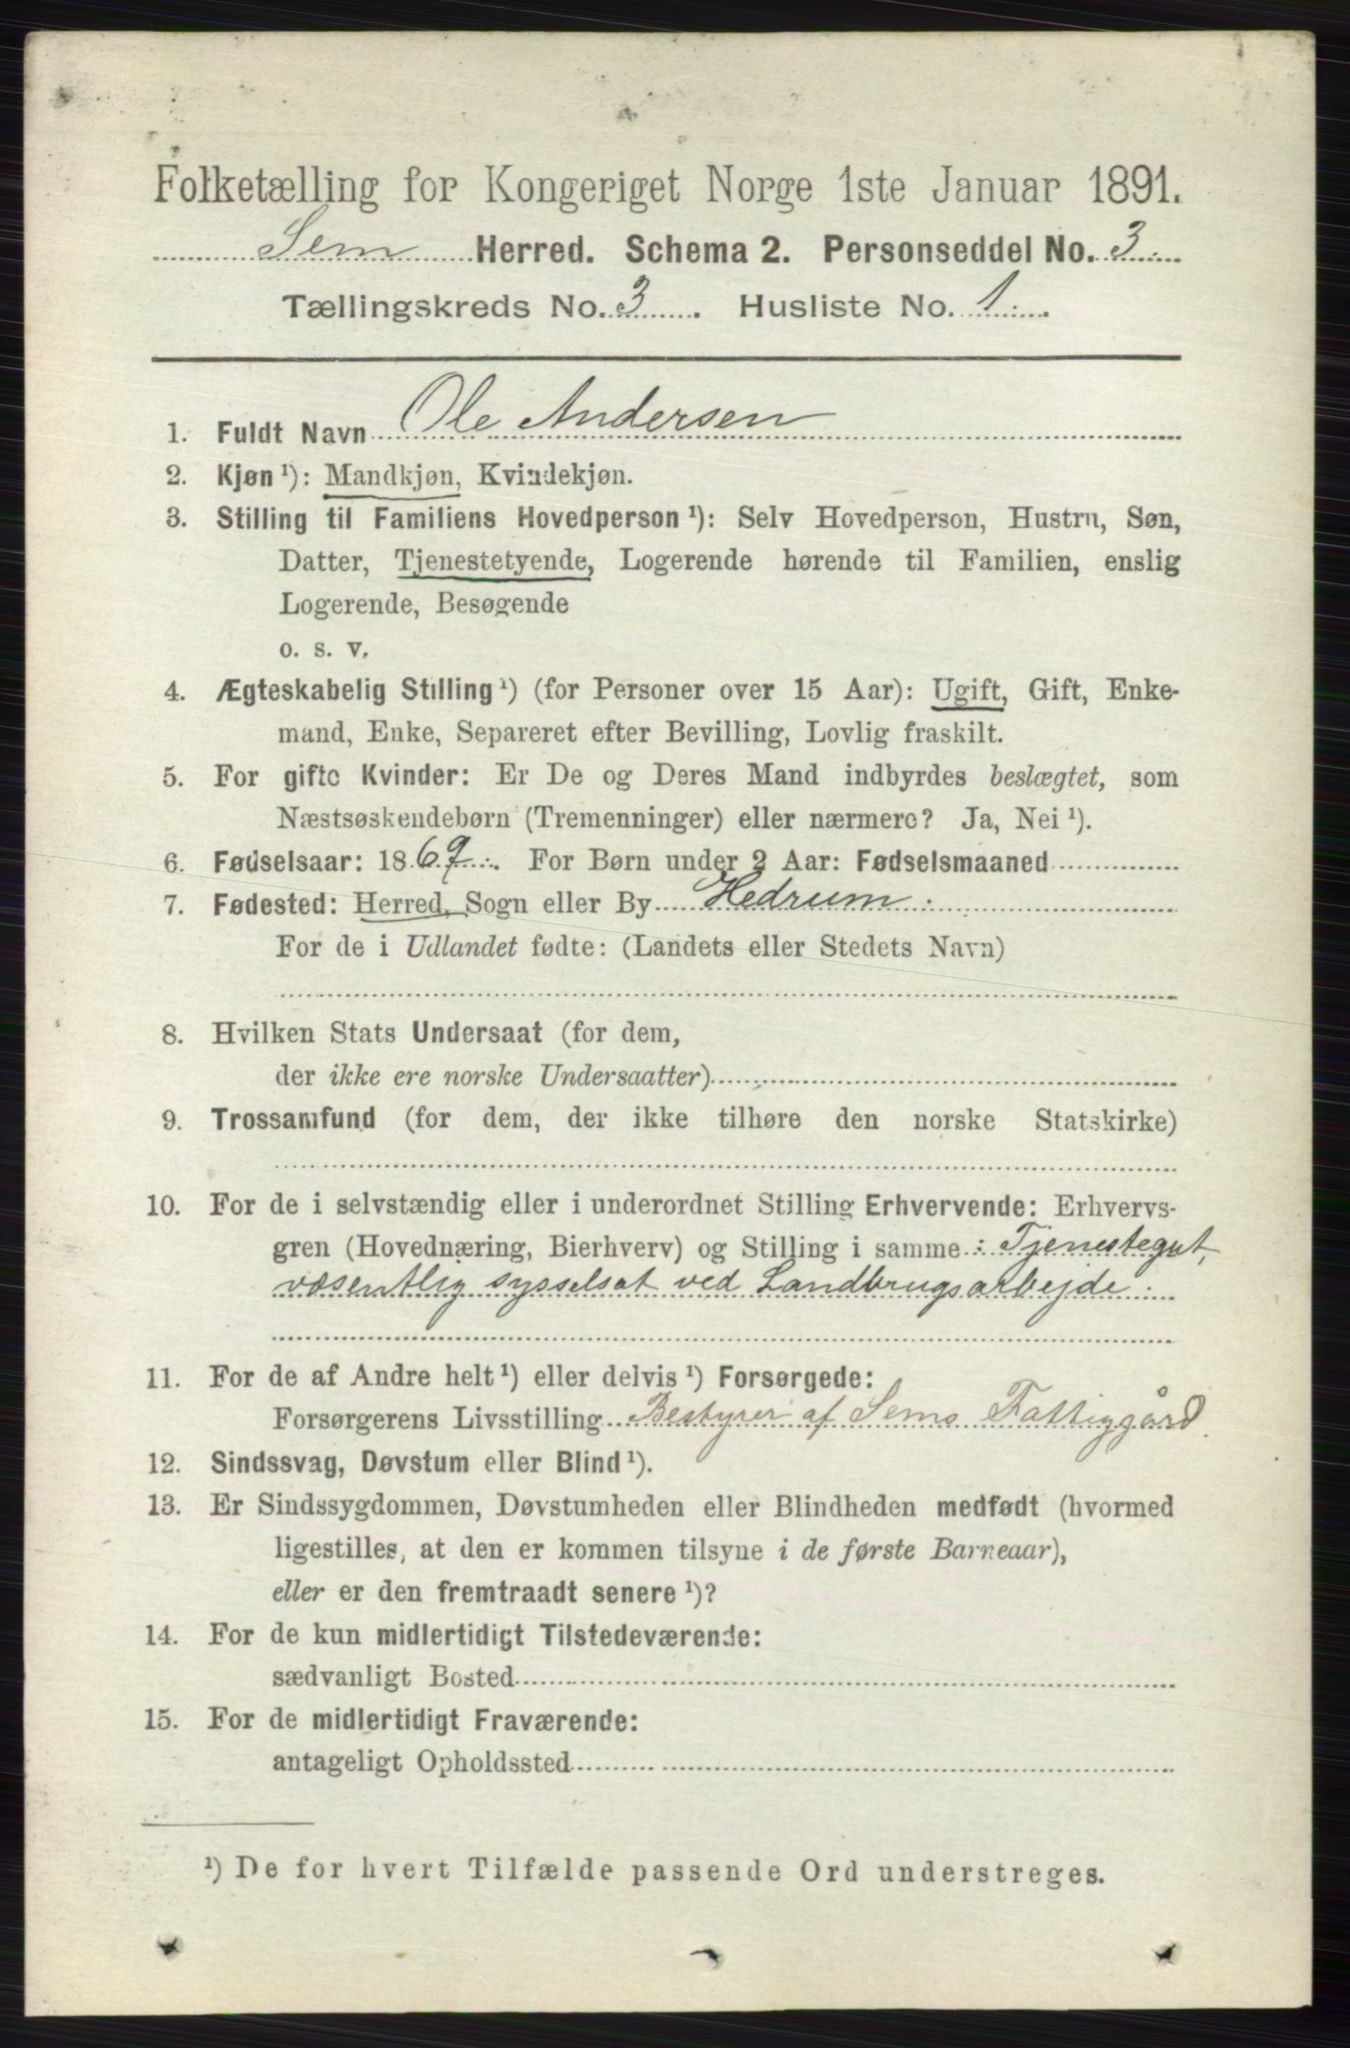 Folketælling for Kongeriget Norge 1ste Januar 1891.
Sem Herred. Schema 2. Personseddel No. 3.
Tællingskreds No. 3. Husliste No. 1.
1. Fuldt Navn Ole Andersen
2. Kjøn ¹): Mandkjøn, Kvindekjøn.
3. Stilling til Familiens Hovedperson ¹): Selv Hovedperson, Hustru, Søn,
Datter, Tjenestetyende, Logerende hørende til Familien, enslig
Logerende, Besøgende
o. s. v.
4. Ægteskabelig Stilling ¹) (for Personer over 15 Aar): Ugift, Gift, Enke-
mand, Enke, Separeret efter Bevilling, Lovlig fraskilt.
5. For gifte Kvinder: Er De og Deres Mand indbyrdes beslægtet, som
Næstsøskendebørn (Tremenninger) eller nærmere? Ja, Nei ¹).
6. Fødselsaar: 1869. For Børn under 2 Aar: Fødselsmaaned
7. Fødested: Herred, Sogn eller By Hedrum.
For de i Udlandet fødte: (Landets eller Stedets Navn)
8. Hvilken Stats Undersaat (for dem,
der ikke ere norske Undersaatter)
9. Trossamfund (for dem, der ikke tilhøre den norske Statskirke)
10. For de i selvstændig eller i underordnet Stilling Erhvervende: Erhvervs-
gren (Hovednæring, Bierhverv) og Stilling i samme: Tjenestegut,
væsentlig sysselsat ved Landbrugsarbejde.
11. For de af Andre helt ¹) eller delvis ¹) Forsørgede:
Forsørgerens Livsstilling Bestyrer af Sems Fattiggård
12. Sindssvag, Døvstum eller Blind ¹).
13. Er Sindssygdommen, Døvstumheden eller Blindheden medfødt (hvormed
ligestilles, at den er kommen tilsyne i de første Barneaar),
eller er den fremtraadt senere ¹)?
14. For de kun midlertidigt Tilstedeværende:
sædvanligt Bosted
15. For de midlertidigt Fraværende:
antageligt Opholdssted
¹) De for hvert Tilfælde passende Ord understreges.